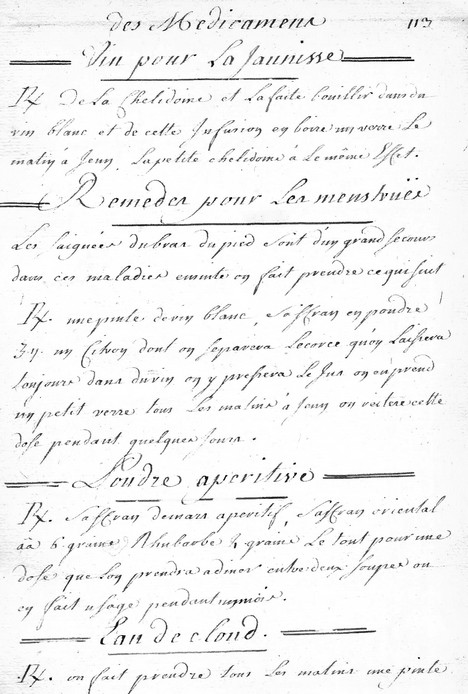 des Medicamens 113
Vin pour La Jaunisse
Rx De La Chelidoine et La faite bouillir dans du
vin blanc et de cette Infusion en boire un verre Le
matin a Jeun, La petite chelidoine à Le même Effet.
Remedes pour Les menstruës
Les saignées du bras du pied sont d'un grand secours
dans ces maladies ensuite on fait prendre ce qui suit
Rx. une pinte de vin blanc, saffran en poudre
un Citron dont on separera Lecorce qu'on Laissera
toujours dans du vin on y pressera Le Jus on en prend
un petit verre tous Les matins à Jeun on reitere cette
dose pendant quelques Jours.
Poudre aperitive
Rx. Saffran de mars aperitif, saffran oriental
āā 6 graine Rhubarbe 2 graine Le tout pour une
dose que Lon prendra a diner entre deux soupes on
en fait usage pendant un mois.
Eau de cloud.
Rx. on fait prendre tous Les matins une pinte